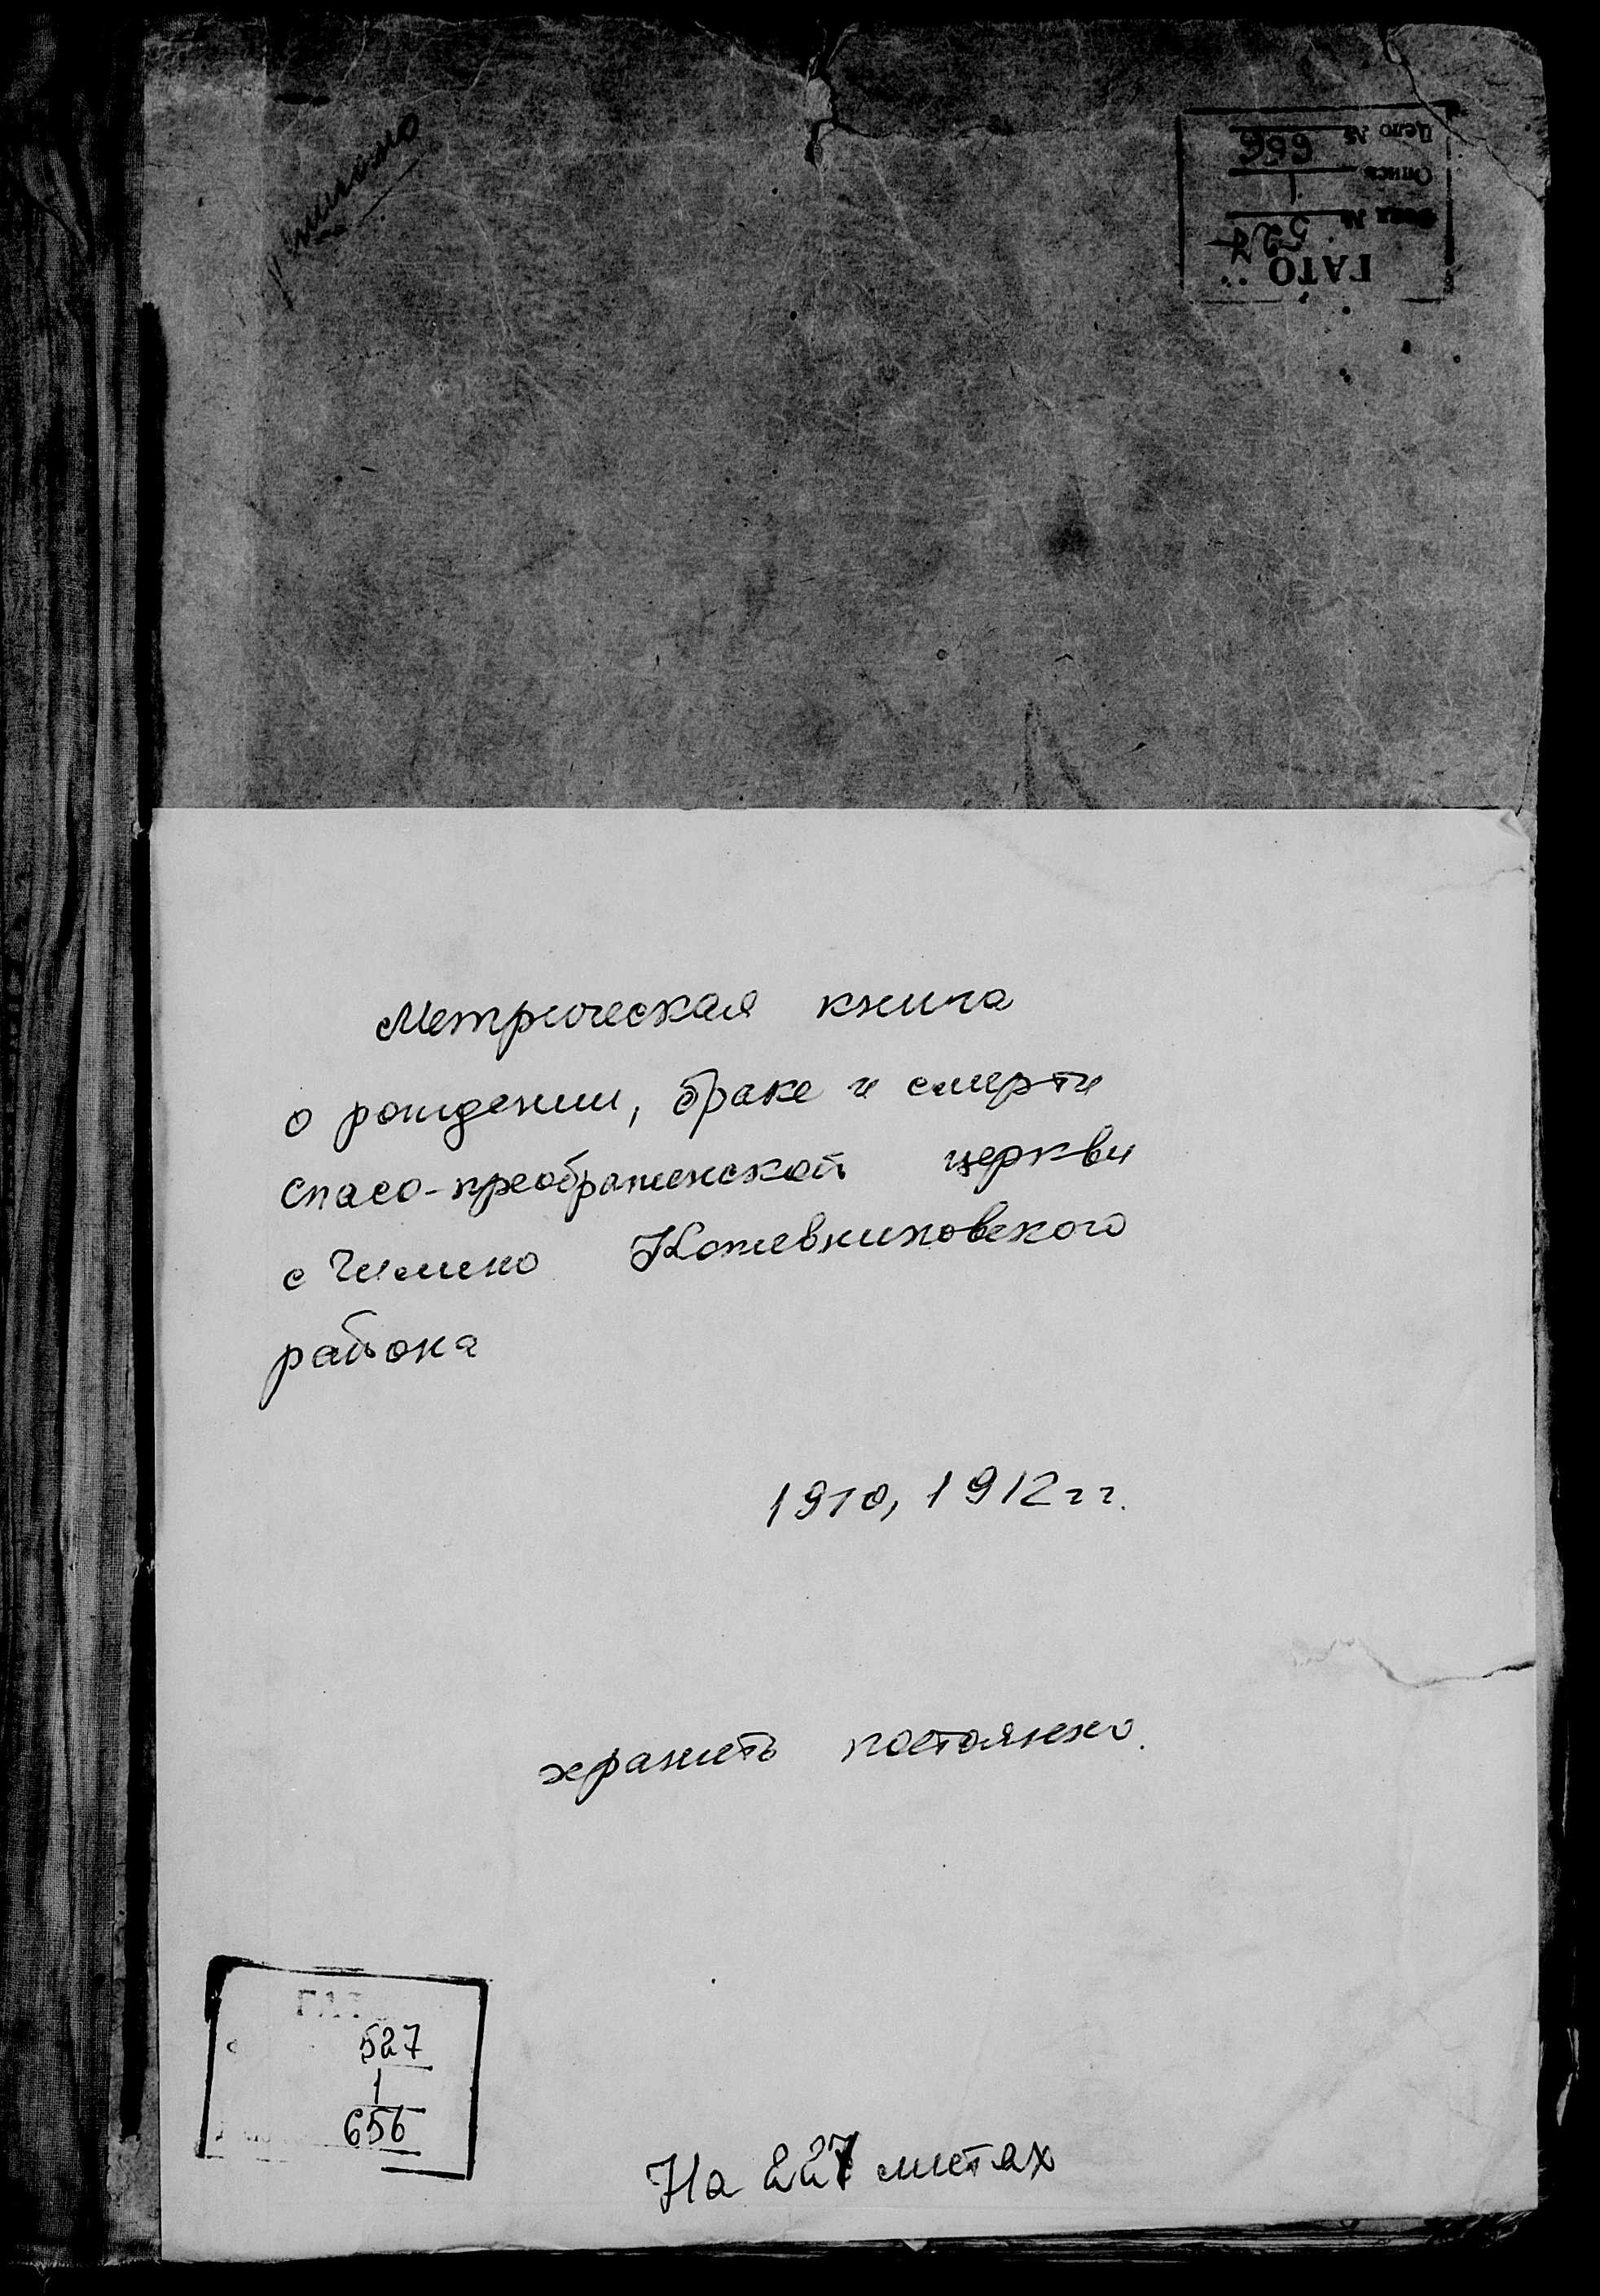 ГАТО
Фонд № 527
Опись 1
Дело № 656
Метрическая книга
о рождении, браке и смерти
Спасо-преображенской церкви
с Чилино Кожевниковского
района
1910, 1912 гг.
хранить постоянно.
527
1
656
На 227 листах